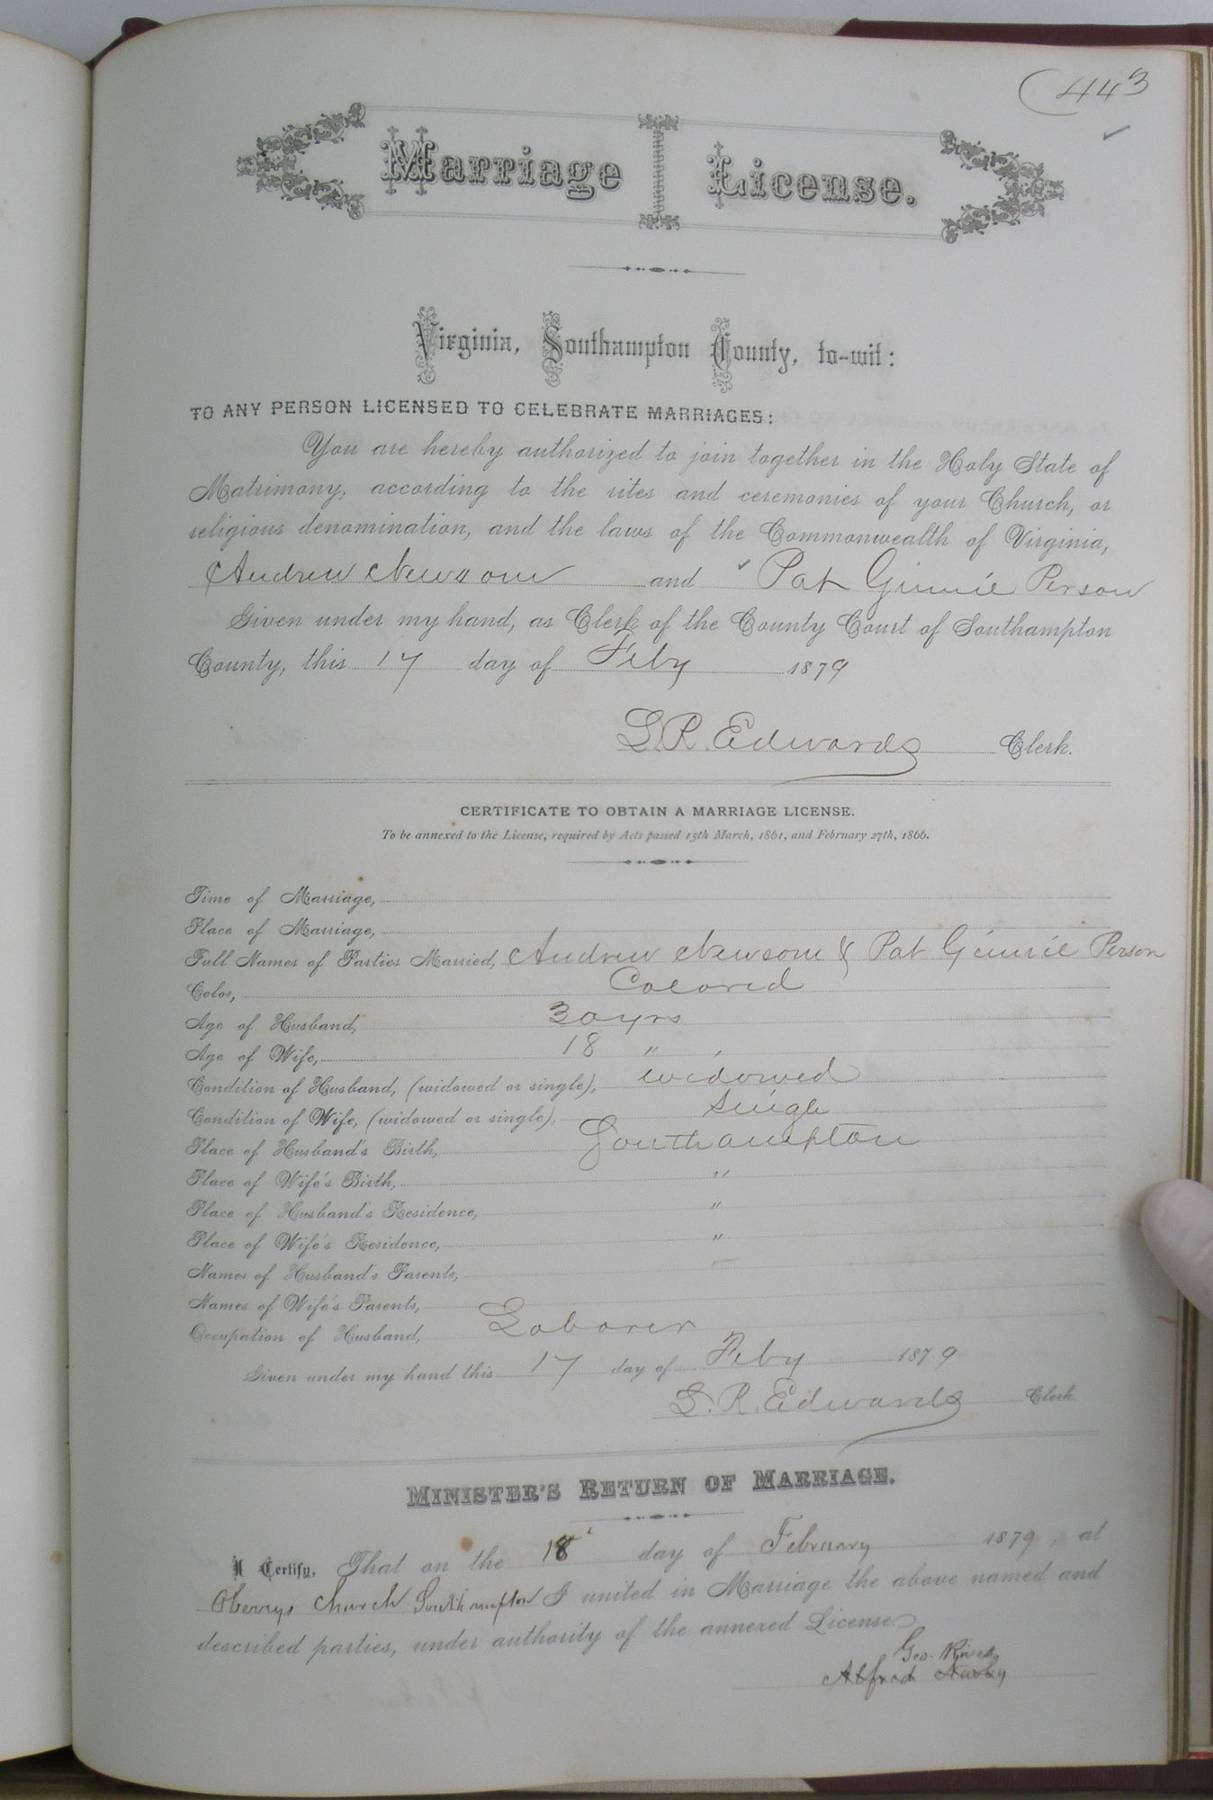 443
Marriage License.
Virginia, Southampton County, to-wit:
TO ANY PERSON LICENSED TO CELEBRATE MARRIAGES:
You are hereby authorized to join together in the Holy State of
Matrimony, according to the rites and ceremonies of your Church, or
religious denomination, and the laws of the Commonwealth of Virginia,
Andrew Newsom and Pat Ginnie Person
Given under my hand, as Clerk of the County Court of Southampton
County, this 17 day of Feby 1879
L. R. Edwards Clerk.
CERTIFICATE TO OBTAIN A MARRIAGE LICENSE.
To be annexed to the License, required by Acts passed 15th March, 1861, and February 27th, 1866.
Time of Marriage,
Place of Marriage,
Full Names of Parties Married, Andrew Newsom & Pat Ginnie Person
Color, Colored
Age of Husband, 30 yrs
Age of Wife, 18 "
Condition of Husband, (widowed or single), widowed
Condition of Wife, (widowed or single), Single
Place of Husband's Birth, Southampton
Place of Wife's Birth, "
Place of Husband's Residence, "
Place of Wife's Residence, "
Names of Husband's Parents,
Names of Wife's Parents,
Occupation of Husband, Laborer
Given under my hand this 17 day of Feby 1879
L. R. Edwards Clerk.
MINISTER'S RETURN OF MARRIAGE.
I Certify, That on the 18 day of February 1879, at
Oberrys Church Southampton I united in Marriage the above named and
described parties, under authority of the annexed License.
Geo.
Alfred